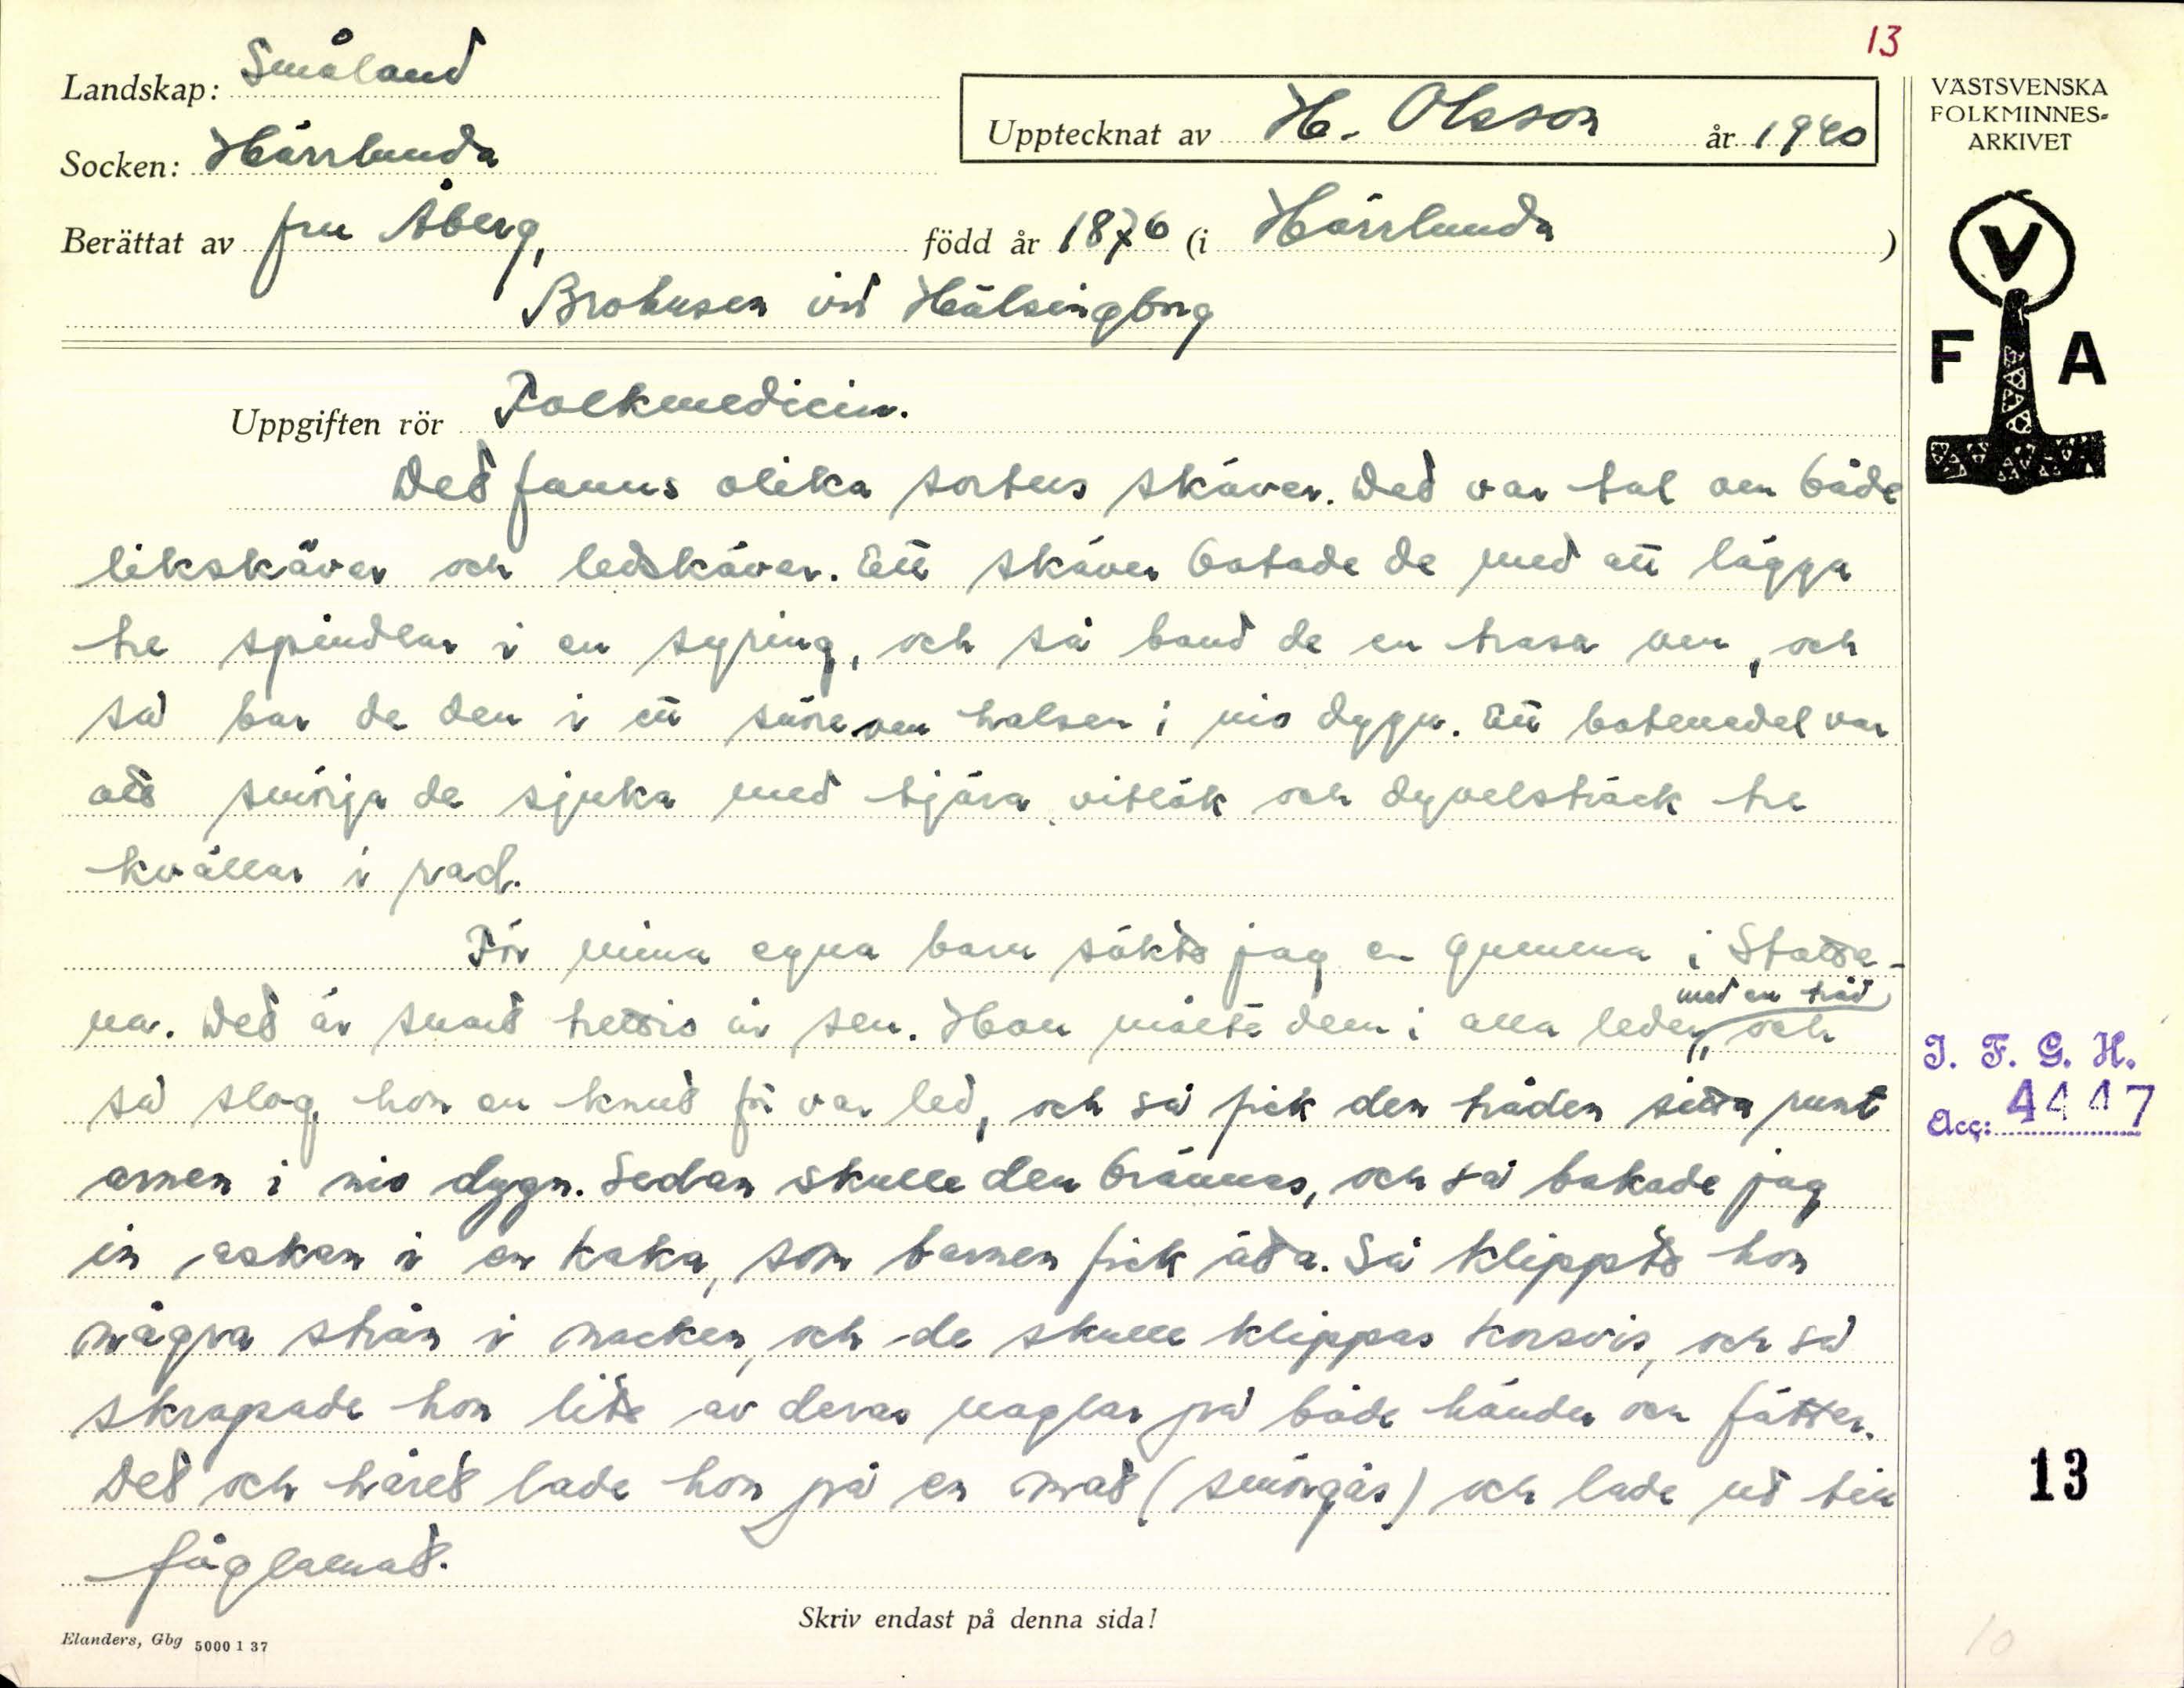 13
Landskap: Småland
Upptecknat av H. Olsson år 1940
Socken: Härrlunda
Berättat av fru Åberg, född år 1876 (i Härrlunda)
Brohusen vid Hälsingborg
VÄSTSVENSKA
FOLKMINNES-
ARKIVET
V
F A
Uppgiften rör Folkmedicin.
Det fanns olika sorters skäver. Det var tal om både
likskäver och ledskäver. Ett skäver botade de med att lägga
tre spindlar i en syring, och så band de en trasa om, och
så bar de den i ett snöre om halsen i nio dygn. Ett botemedel var
att smörja de sjuka med tjära, vitlök och dyvelsträck tre
kvällar i rad.
För mina egna barn sökte jag en gumma i Statta-
na. Det är snart trettio år sen. Hon mätte dem i alla leder med en tråd, och
så slog hon en knut för var led, och så fick den tråden sitta runt
armen i nio dygn. Sedan skulle den brännas, och så bakade jag
in askan i en kaka, som barnen fick äta. Så klippte hon
några strån i nacken, och de skulle klippas korsvis, och så
skrapade hon lite av deras naglar på både händer och fötter.
Det och håret lade hon på en mat (smörgås) och lade ut till
fåglamat.
I. F. G. H.
Acc: 4447
13
Skriv endast på denna sida!
Elanders, Gbg 5000 1 37
10